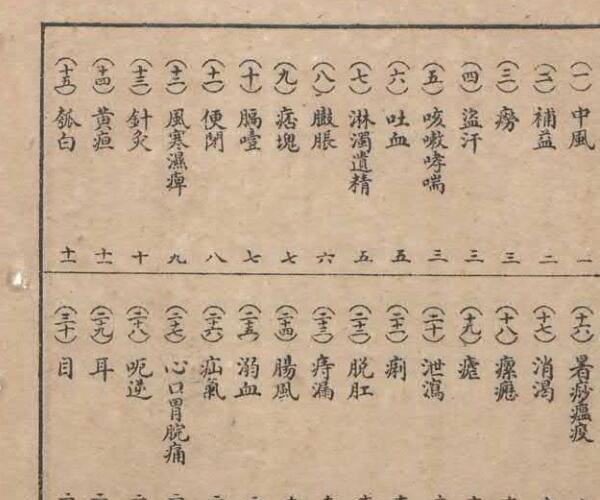 (一)中風 一
(二)補益 二
(三)癆 三
(四)盜汗 三
(五)咳嗽哮喘 三
(六)吐血 五
(七)淋濁遺精 五
(八)臌脹 六
(九)痞塊 七
(十)膈噎 七
(十一)便閉 八
(十二)風寒濕痺 九
(十三)針灸 十
(十四)黃疸 十一
(十五)瓠白 十一
(十六)暑痧瘟疫
(十七)消渴
(十八)瘰癧
(十九)瘧
(二十)泄瀉
(二十一)痢
(二十二)脫肛
(二十三)痔漏
(二十四)腸風
(二十五)溺血
(二十六)疝氣
(二十七)心口胃脘痛
(二十八)呃逆
(二十九)耳
(三十)目